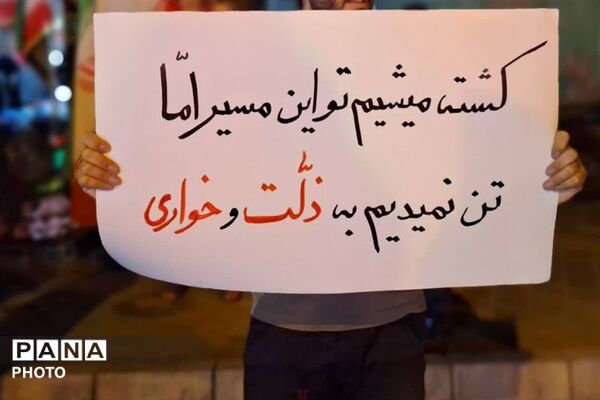 کشته میشیم تو این مسیر امّا
تن نمیدیم به ذلّت و خواری
PANA
PHOTO